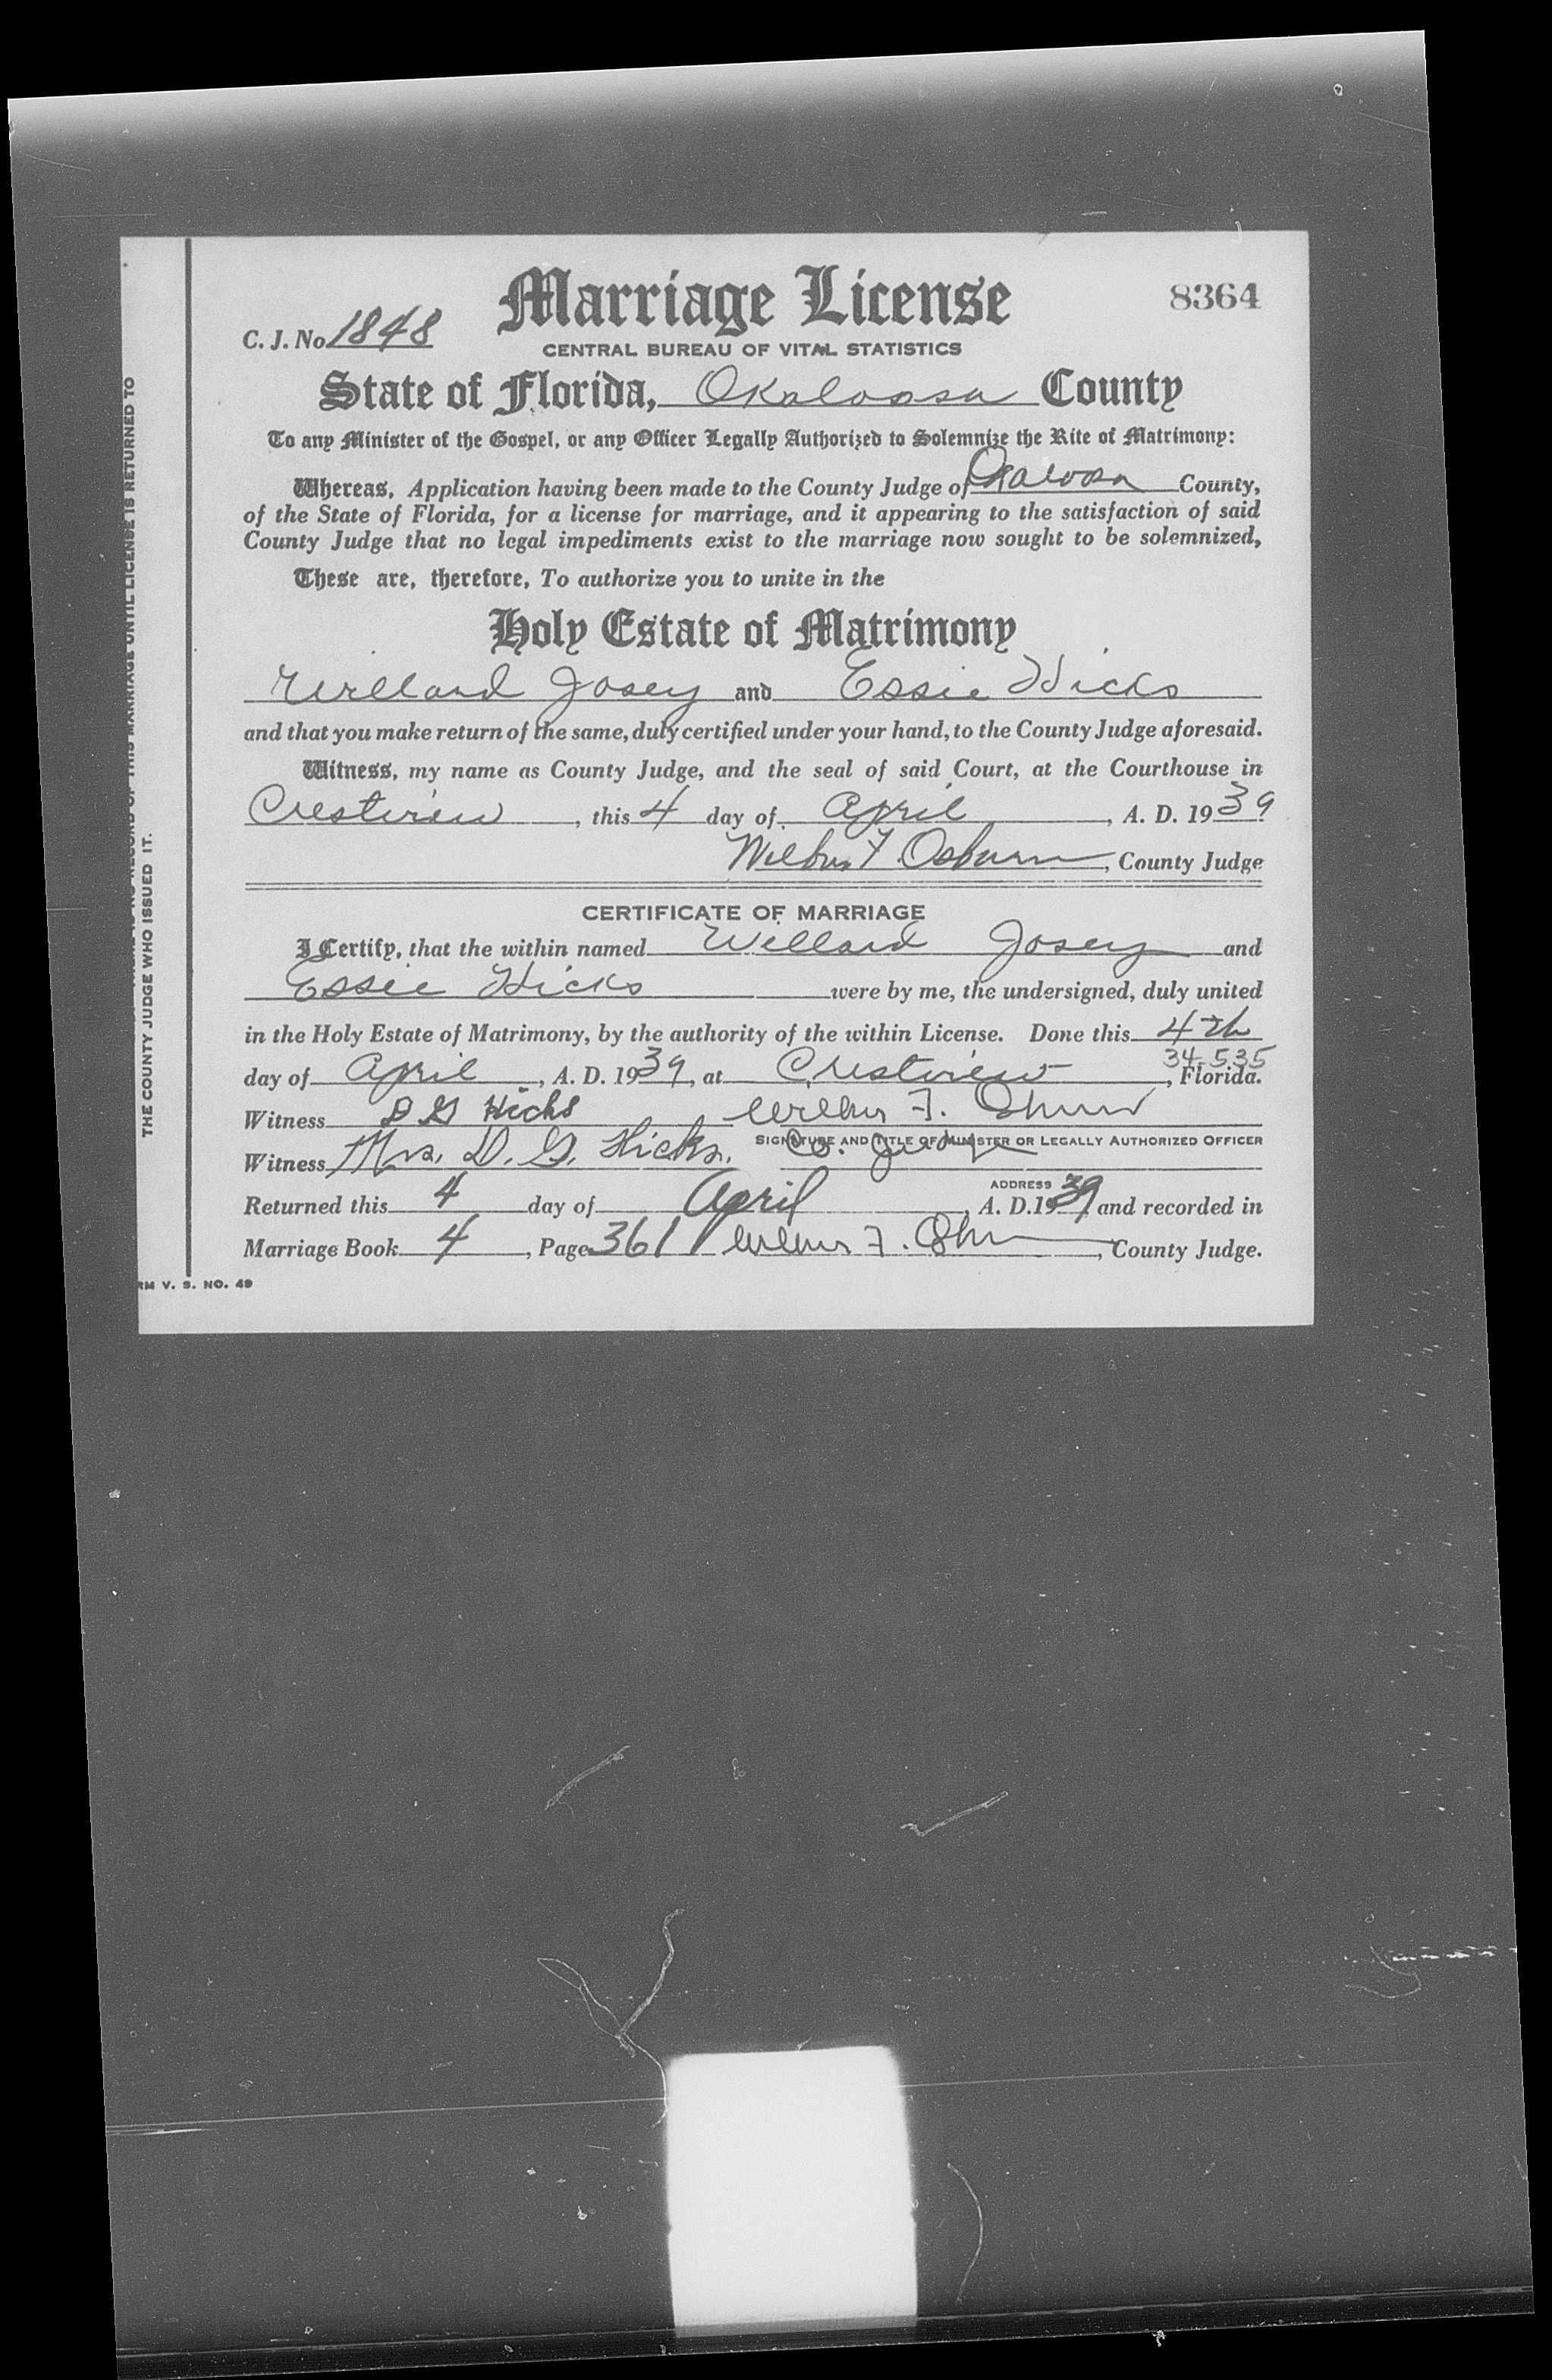 Marriage License
8364
C. J. No 1848
CENTRAL BUREAU OF VITAL STATISTICS
State of Florida, Okaloosa County
To any Minister of the Gospel, or any Officer Legally Authorized to Solemnize the Rite of Matrimony:
Whereas, Application having been made to the County Judge of Okaloosa County,
of the State of Florida, for a license for marriage, and it appearing to the satisfaction of said
County Judge that no legal impediments exist to the marriage now sought to be solemnized,
These are, therefore, To authorize you to unite in the
Holy Estate of Matrimony
Willard Josey and Essie Hicks
and that you make return of the same, duly certified under your hand, to the County Judge aforesaid.
Witness, my name as County Judge, and the seal of said Court, at the Courthouse in
Crestview, this 4 day of April, A. D. 1939
Wilbur F. Osburn, County Judge
CERTIFICATE OF MARRIAGE
I Certify, that the within named Willard Josey and
Essie Hicks were by me, the undersigned, duly united
in the Holy Estate of Matrimony, by the authority of the within License. Done this 4th
34-535
day of April, A. D. 1939, at Crestview, Florida.
Witness D G Hicks Wilbur F. Osburn
SIGNATURE AND TITLE OF MINISTER OR LEGALLY AUTHORIZED OFFICER
Witness Mrs. D. G. Hicks. Co. Judge
ADDRESS
Returned this 4 day of April, A. D. 1939 and recorded in
Marriage Book 4, Page 361 Wilbur F. Osburn, County Judge.
RM V. S. NO. 49
RECORD OF THIS MARRIAGE UNTIL LICENSE IS RETURNED TO
THE COUNTY JUDGE WHO ISSUED IT.